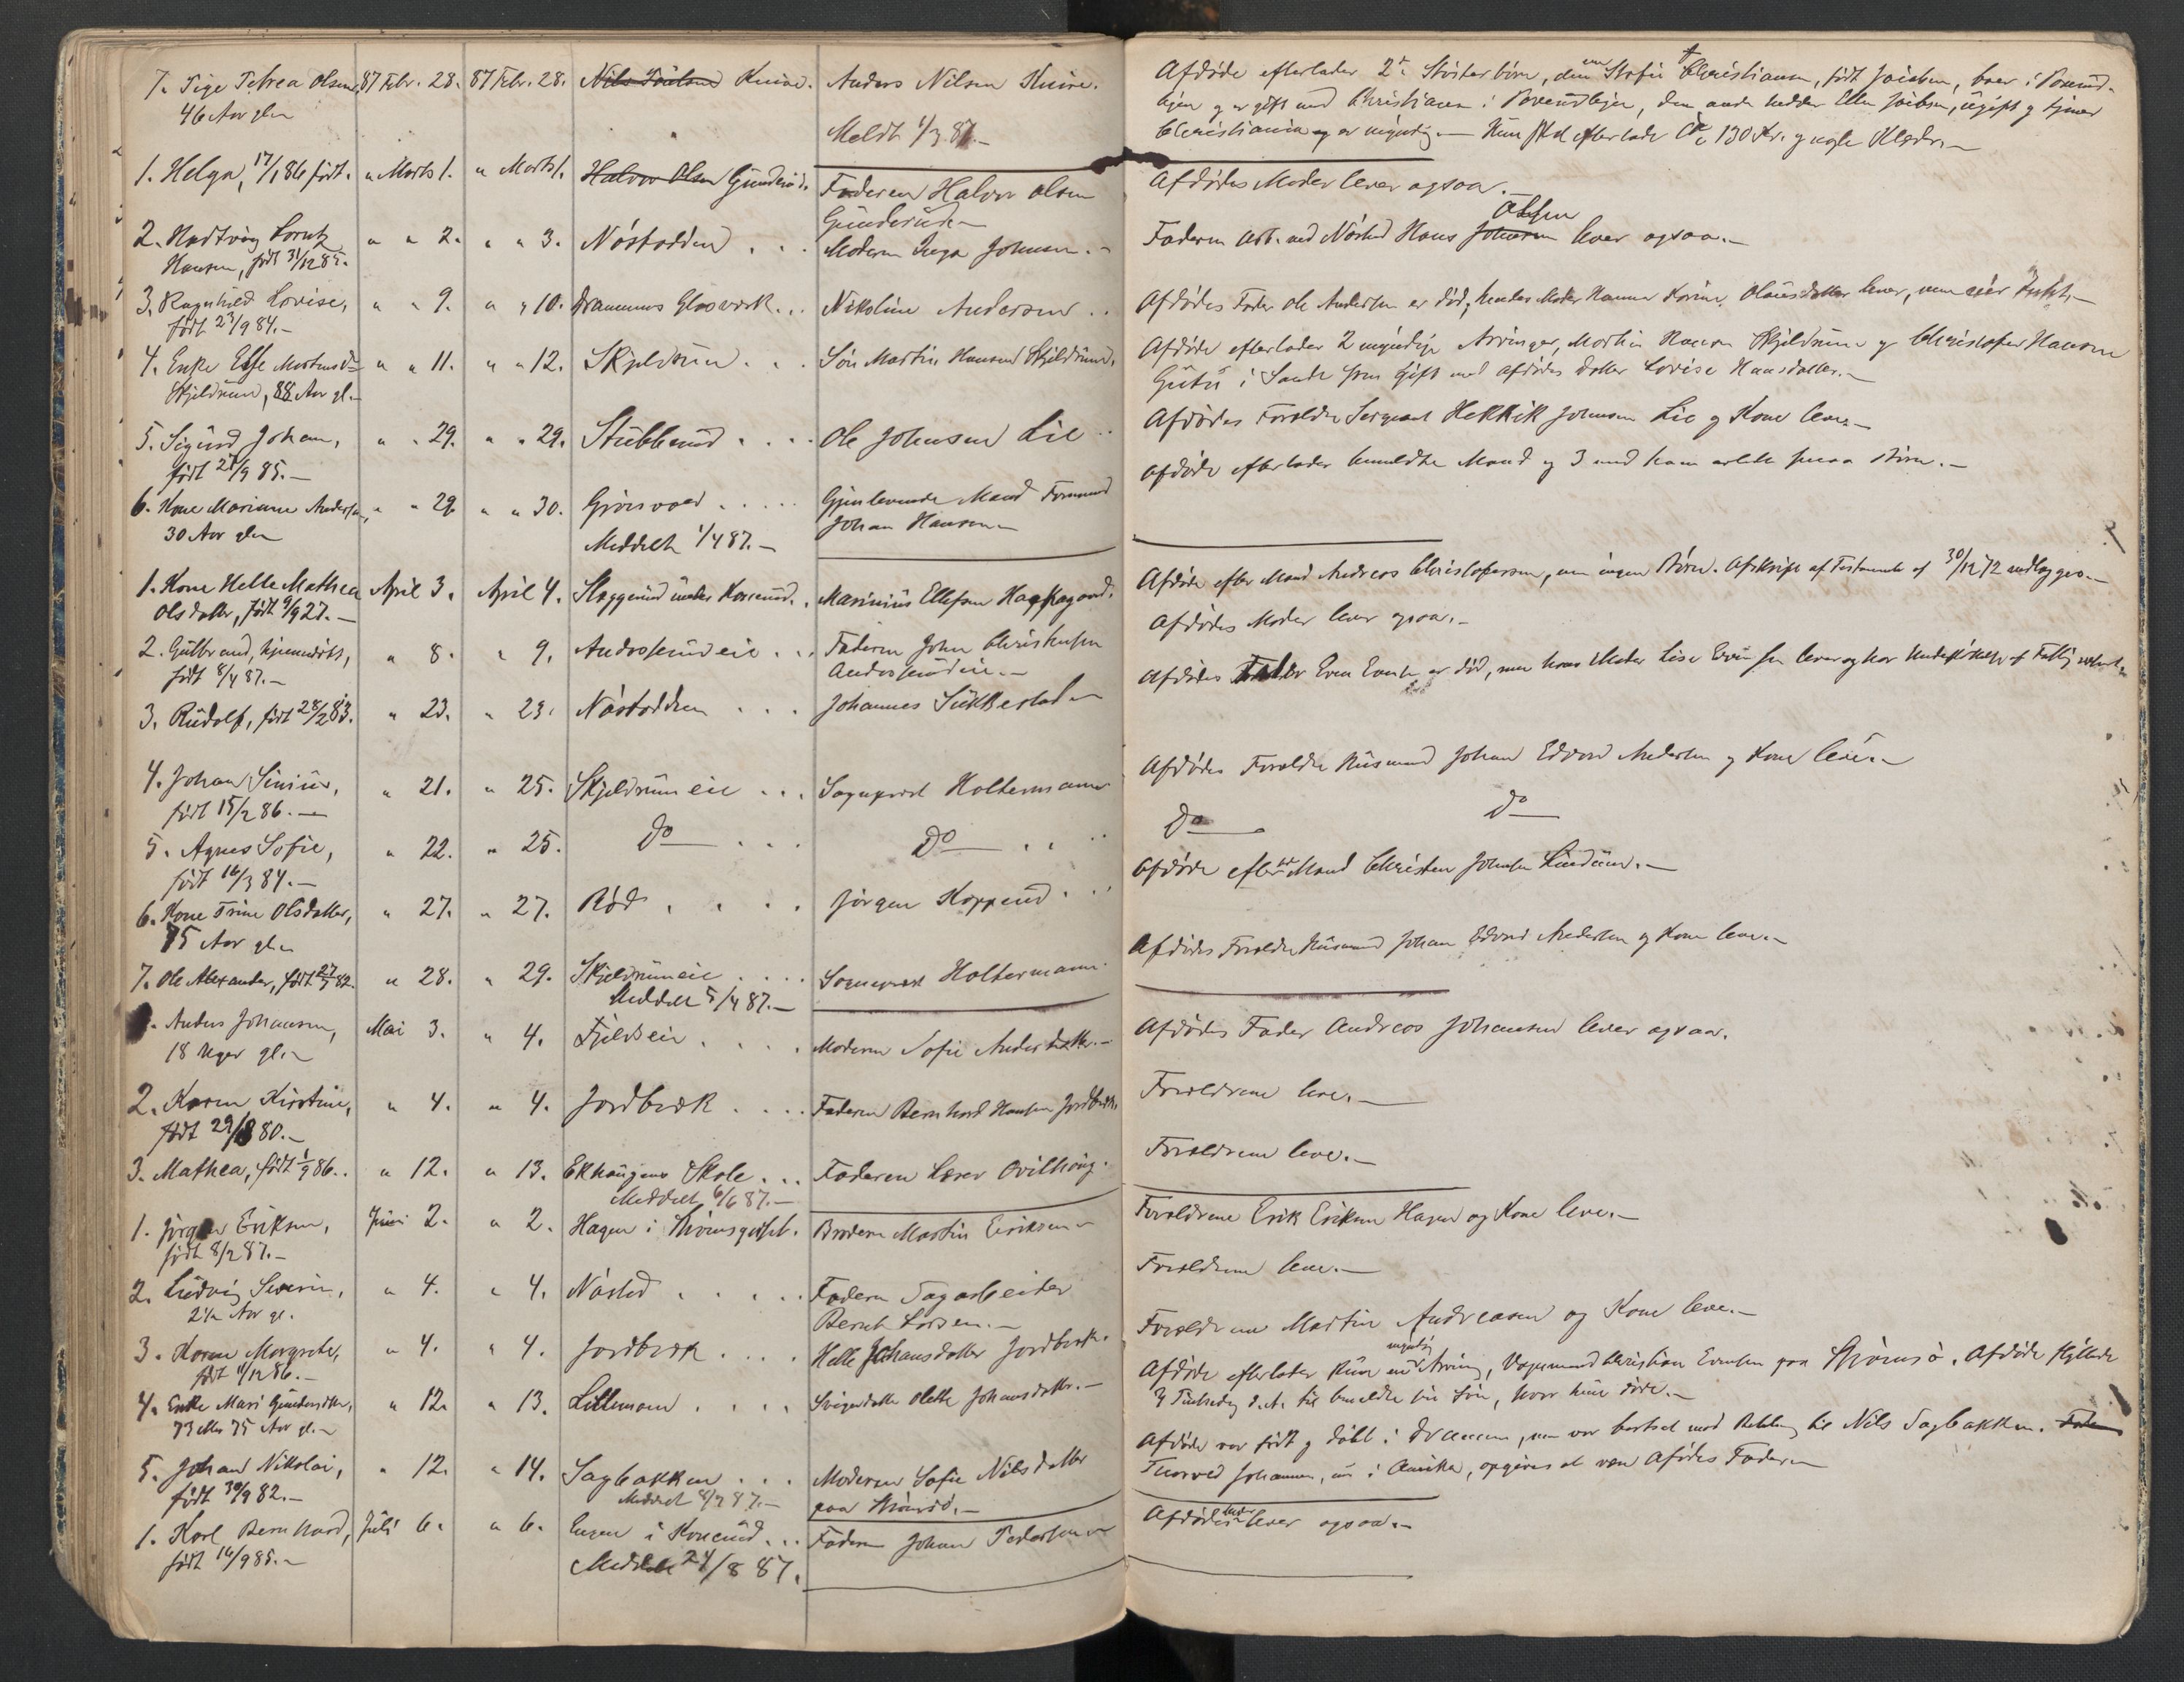 7. Pige Petrea Olsen, 87 Febr. 28. 87 Febr. 28. Nils Knive. Anders Nilsen Knive.
46 Aar gl.
Meldt 1/3 87.
Afdøde efterlader 2 Søsterbørn, den ene Sofie Christiansen, født Jacobsen, boer i
og er gift med Christiansen i den anden hedder Ellen Jacobsen, ugift og tjener
Christiania og er myndig. Hun skal efterlade 130 Kr. og nogle Klæder.
1. Helga, 17/1 86 født. " Marts 1. " Marts 1. Halvor Olsen Gunderud. Faderen Halvor Olsen
Gunderud.
Afdødes Moder lever ogsaa.
2. Hedvig Lorentz " " 2. " " 3. Nøstodden . . Moderen Inga Johnsen.
Hansen, født 31/12 85.
Faderen Arb. ved Nøsted Hans Johnsen Olsen lever ogsaa.
3. Ragnhild Lovise, " " 9. " " 10. Drammens Glasværk . . . Nikoline Andersen . .
født 23/9 84.
Afdødes Fader Ole Andersen er død, hendes Moder Hanna Karine Olausdatter lever, men
4. Enke Else Mortensd. " " 11. " " 12. Skjeldrum . . . Søn Martin Hansen Skjeldrum.
Skjeldrum, 88 Aar gl.
Afdøde efterlader 2 myndige Arvinger, Martin Hansen Skjeldrum og Christofer Hansen
Gutu i Sande som gift med afdødes Datter Lovise Hansdatter.
5. Sigurd Johan, " " 29. " " 29. Stubberud . . . . Ole Johnsen Lie . .
født 27/9 85.
Afdødes Forældre Sergeant Henrik Johnsen Lie og Kone leve.
6. Kone Mariane Andersen, " " 29. " " 30. Gjøsvold . . . . Gjenlevende Mand Formand
30 Aar gl. Johan Hansen
Meddelt 1/4 87.
Afdøde efterlader bemeldte Mand og 3 med ham avlede smaa Børn.
1. Kone Helle Mathea April 3. April 4. Skaggerud under Korserud. . Marinius Ellefsen Haakagaard.
Olsdatter, født 9/9 27.
Afdøde efter Mand Andreas Christofersen, men ingen Børn. Afskrift af Testamente af 30/12 72 vedlægges.
2. Gulbrand, hjemmedøbt, " 8. " 9. Androsenudeie . . . Faderen John Christensen
født 8/4 87.
Afdødes Moder lever ogsaa.
3. Rudolf, født 28/2 83. " 23. " 23. Nøstodden . . . Johannes Sukkestad
Afdødes Fader Even Evensen er død, men hans Moder Lise Evensen lever og har Understøttelse af
4. Johan Sinius, " 21. " 25. Skjeldrumeie . . . Sogneprest Holtermann
født 15/2 86.
Afdødes Forældre Husmand Johan Edvard Andersen og Kone leve.
5. Agnes Sofie, " 22. " 25. Do . . . Do . . .
født 16/3 84.
Do Do
6. Kone Trine Olsdatter, " 27. " 27. Rød . . . . Jørgen Koppend . .
75 Aar gl.
Afdøde efterl. Mand Christen Johnsen Lindum.
7. Ole Alexander, født 27/5 82. " 28. " 29. Skjeldrumeie . . . . Sogneprest Holtermann
Meddelt 5/4 87.
Afdødes Forældre Husmand Johan Edvard Andersen og Kone leve.
1. Anders Johansen, Mai 3. " 4. Fjeldseie . . . . Moderen Sofie Andersdatter.
18 Uger gl.
Afdødes Fader Andreas Johansen lever ogsaa.
2. Karen Kirstine, " 4. " 4. Jordbræk . . . . Faderen Bernhard Hansen Jordbræk.
født 29/8 80.
Forældrene leve.
3. Mathea, født 1/9 86. . " 12. " 13. Ekhaugens Skole . . . Faderen Lærer Ovilhaug.
Meddelt 6/6 87.
Forældrene leve.
1. Jørgen Eriksen, Juni 2. " 2. Hagen i Strømsgodset. Broderen Martin Eriksen
født 8/2 87.
Forældrene Erik Eriksen Hagen og Kone leve.
2. Ludvig Severin, " 4. " 4. Nøsted . . . . . Faderen Sagarbeider
2 1/2 Aar gl. Bernt Larsen.
Forældrene leve.
3. Karen Margrete, " 4. " 4. Jordbræk . . . . Helle Johansdatter Jordbræk.
født 11/12 86.
Forældrene Martin Andreasen og Kone leve.
4. Enke Mari Gundersdtr, " 12. " 13. Lillemoen . . . . Svigerdatter Olette Johansdatter.
73 eller 75 Aar gl.
Afdøde efterlader kun en myndig Arving, Vognmand Christian Evensen paa Strømsø. Afdøde flyttede
til bemeldte sin Søn, hvor hun døde.
5. Johan Nikolai, " 12. " 14. Sagbakken . . . Moderen Sofie Nilsdatter
født 30/9 82. Meddelt 8/7 87. paa Strømsø.
Afdøde var født og døbt i Drammen, men var bortsat mod Betaling til Nils Sagbakken.
Thorvald Johannesen, nu i Amerika, opgives at være Afdødes Fader.
1. Karl Bernhard, Juli 6. " 6. Engen i Korserud . . . Faderen Johan Pedersen
født 16/9 85.
Meddelt 24/8 87.
Afdødes Moder lever ogsaa.